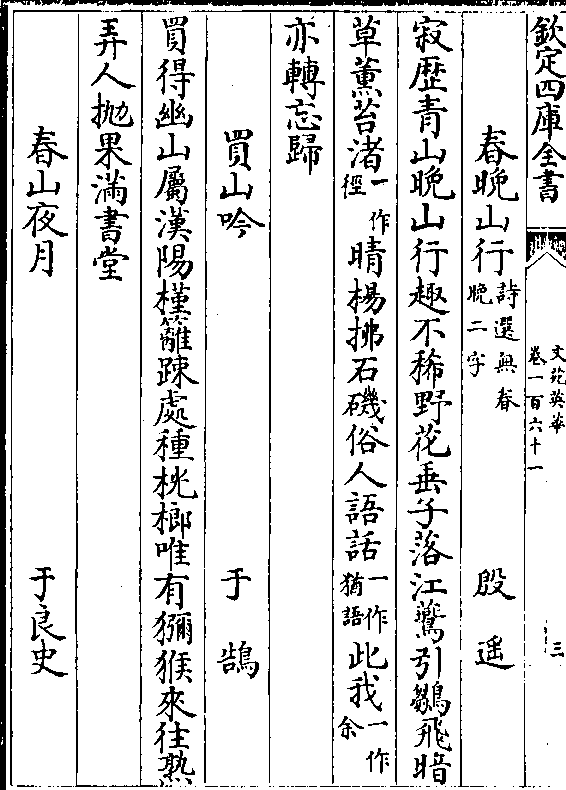 欽定四庫全書
文苑英華
卷一百六十一
三
春晚山行詩選無春晚二字 殷遥
寂歷青山晚山行趣不稀野花垂子落江鷰引鶵飛暗
草薰苔渚一作徑晴楊拂石磯俗人語話一作猶語此我一作余
亦轉忘歸
買山吟 于鵠
買得幽山屬漢陽槿籬踈處種桄榔唯有獼猴來往熟
弄人抛果滿書堂
春山夜月 于良史